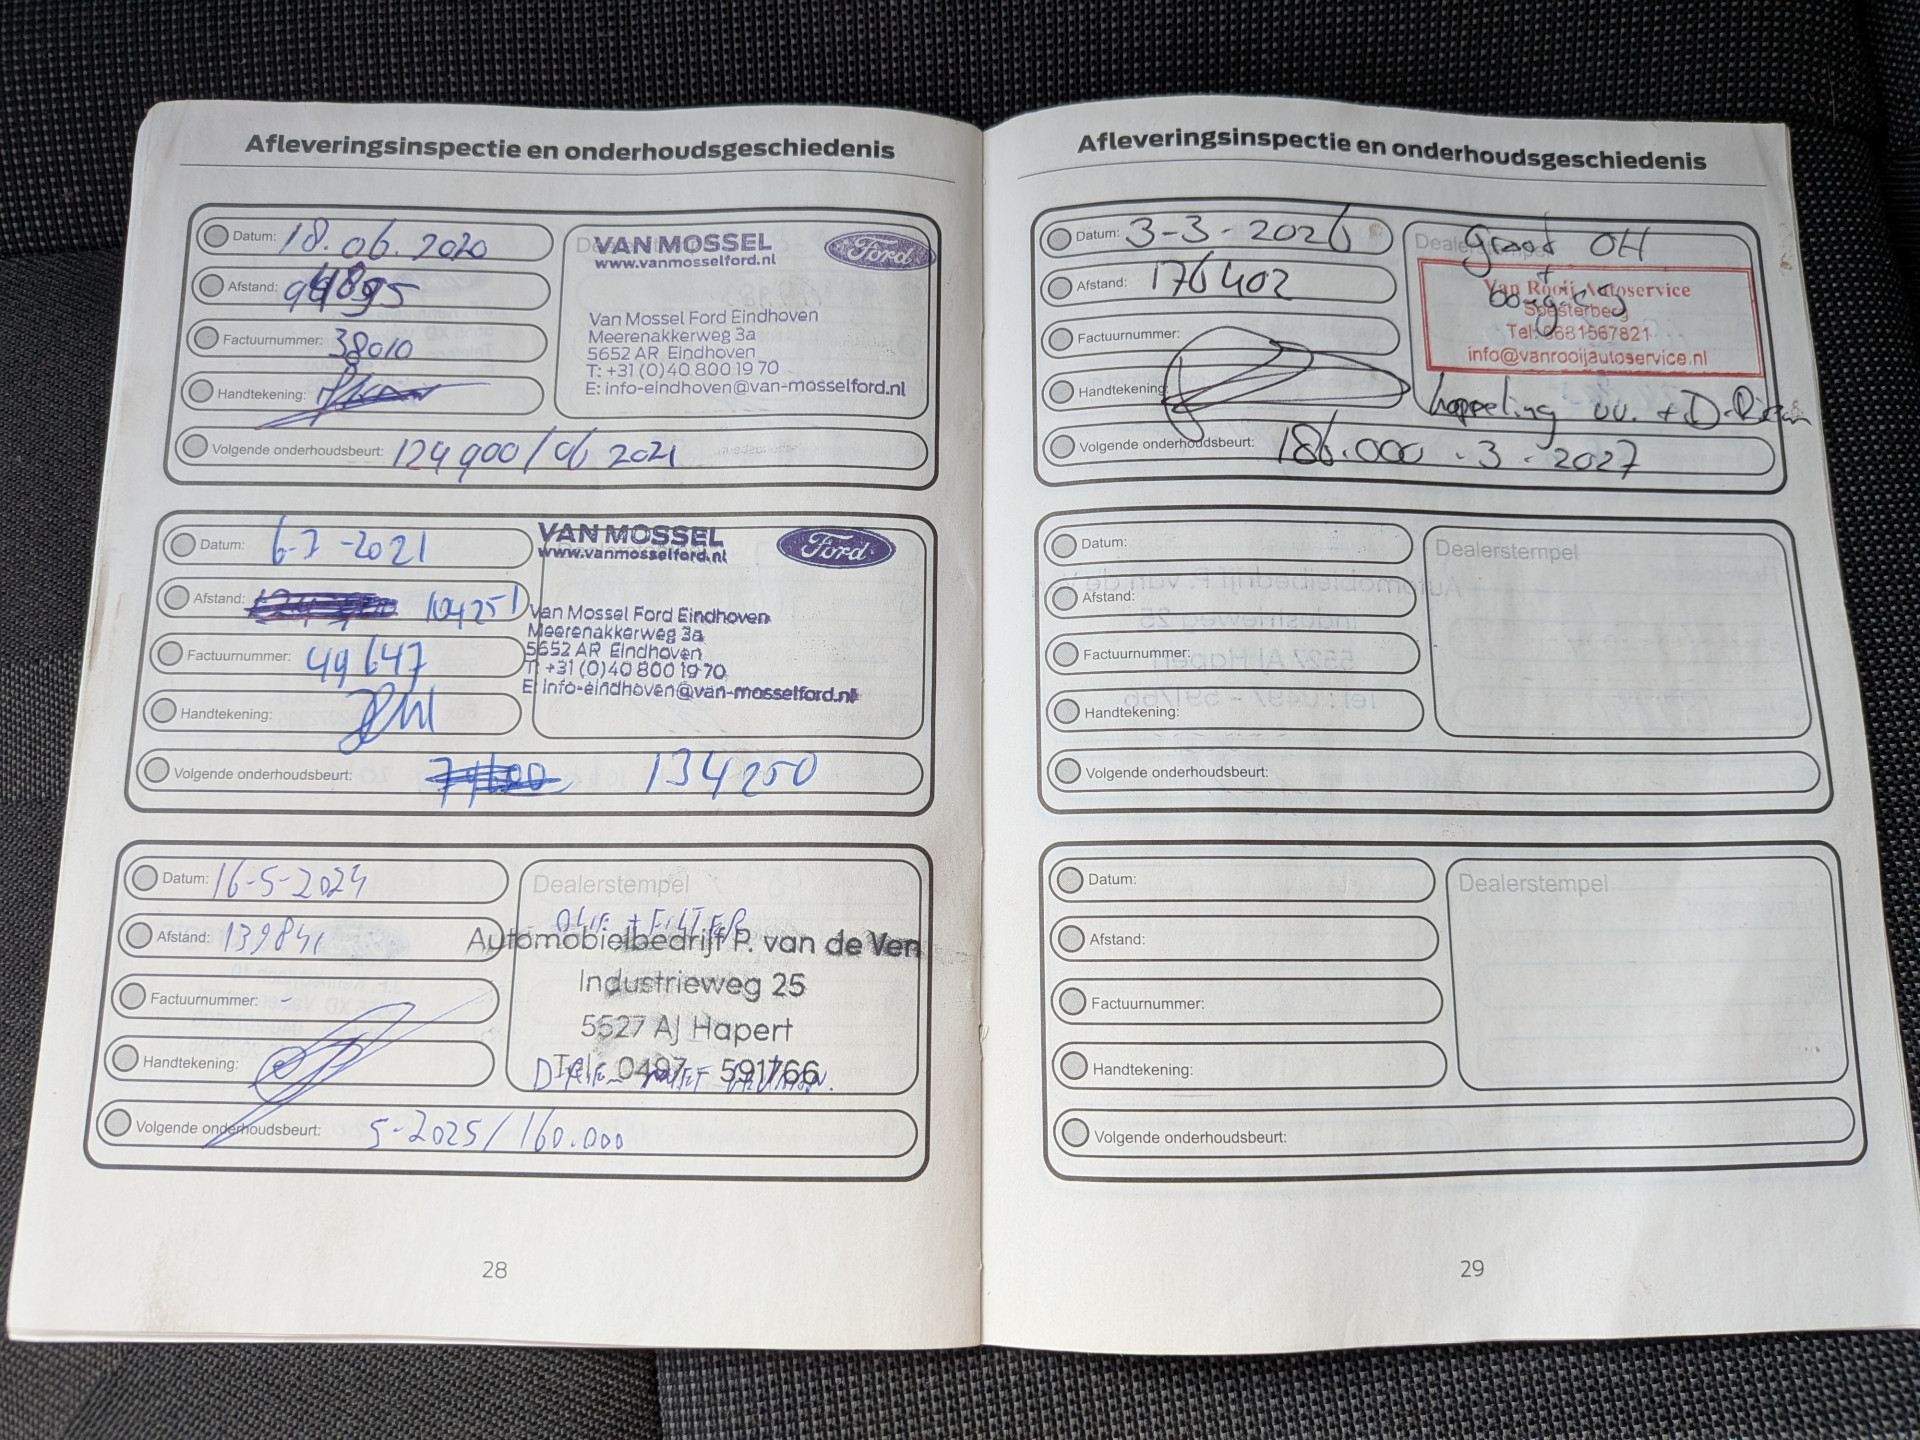 Afleveringsinspectie en onderhoudsgeschiedenis
Datum: 18.06.2020
Afstand: 94895
Factuurnummer: 38010
Handtekening:
Volgende onderhoudsbeurt: 124900/06 2021
VAN MOSSEL
www.vanmosselford.nl
Ford
Van Mossel Ford Eindhoven
Meerenakkerweg 3a
5652 AR Eindhoven
T: +31 (0)40 800 19 70
E: info-eindhoven@van-mosselford.nl
Datum: 6-7-2021
Afstand: 104251
Factuurnummer: 49647
Handtekening:
Volgende onderhoudsbeurt: 134250
VAN MOSSEL
www.vanmosselford.nl
Ford
Van Mossel Ford Eindhoven
Meerenakkerweg 3a
5652 AR Eindhoven
T: +31 (0)40 800 19 70
E: info-eindhoven@van-mosselford.nl
Datum: 16-5-2024
Afstand: 139841
Factuurnummer: -
Handtekening:
Volgende onderhoudsbeurt: 5-2025/160.000
Dealerstempel
OLIE + FILTER
Automobielbedrijf P. van de Ven
Industrieweg 25
5527 AJ Hapert
Tel.: 0497 - 591766
28
Afleveringsinspectie en onderhoudsgeschiedenis
Datum: 3-3-2026
Afstand: 176402
Factuurnummer:
Handtekening:
Volgende onderhoudsbeurt: 186.000 - 3 - 2027
groot OH
+
Van Rooij Autoservice
Soesterberg
Tel: 0681567821
info@vanrooijautoservice.nl
koppeling vv. + D-Riem
Datum:
Afstand:
Factuurnummer:
Handtekening:
Volgende onderhoudsbeurt:
Dealerstempel
Datum:
Afstand:
Factuurnummer:
Handtekening:
Volgende onderhoudsbeurt:
Dealerstempel
29